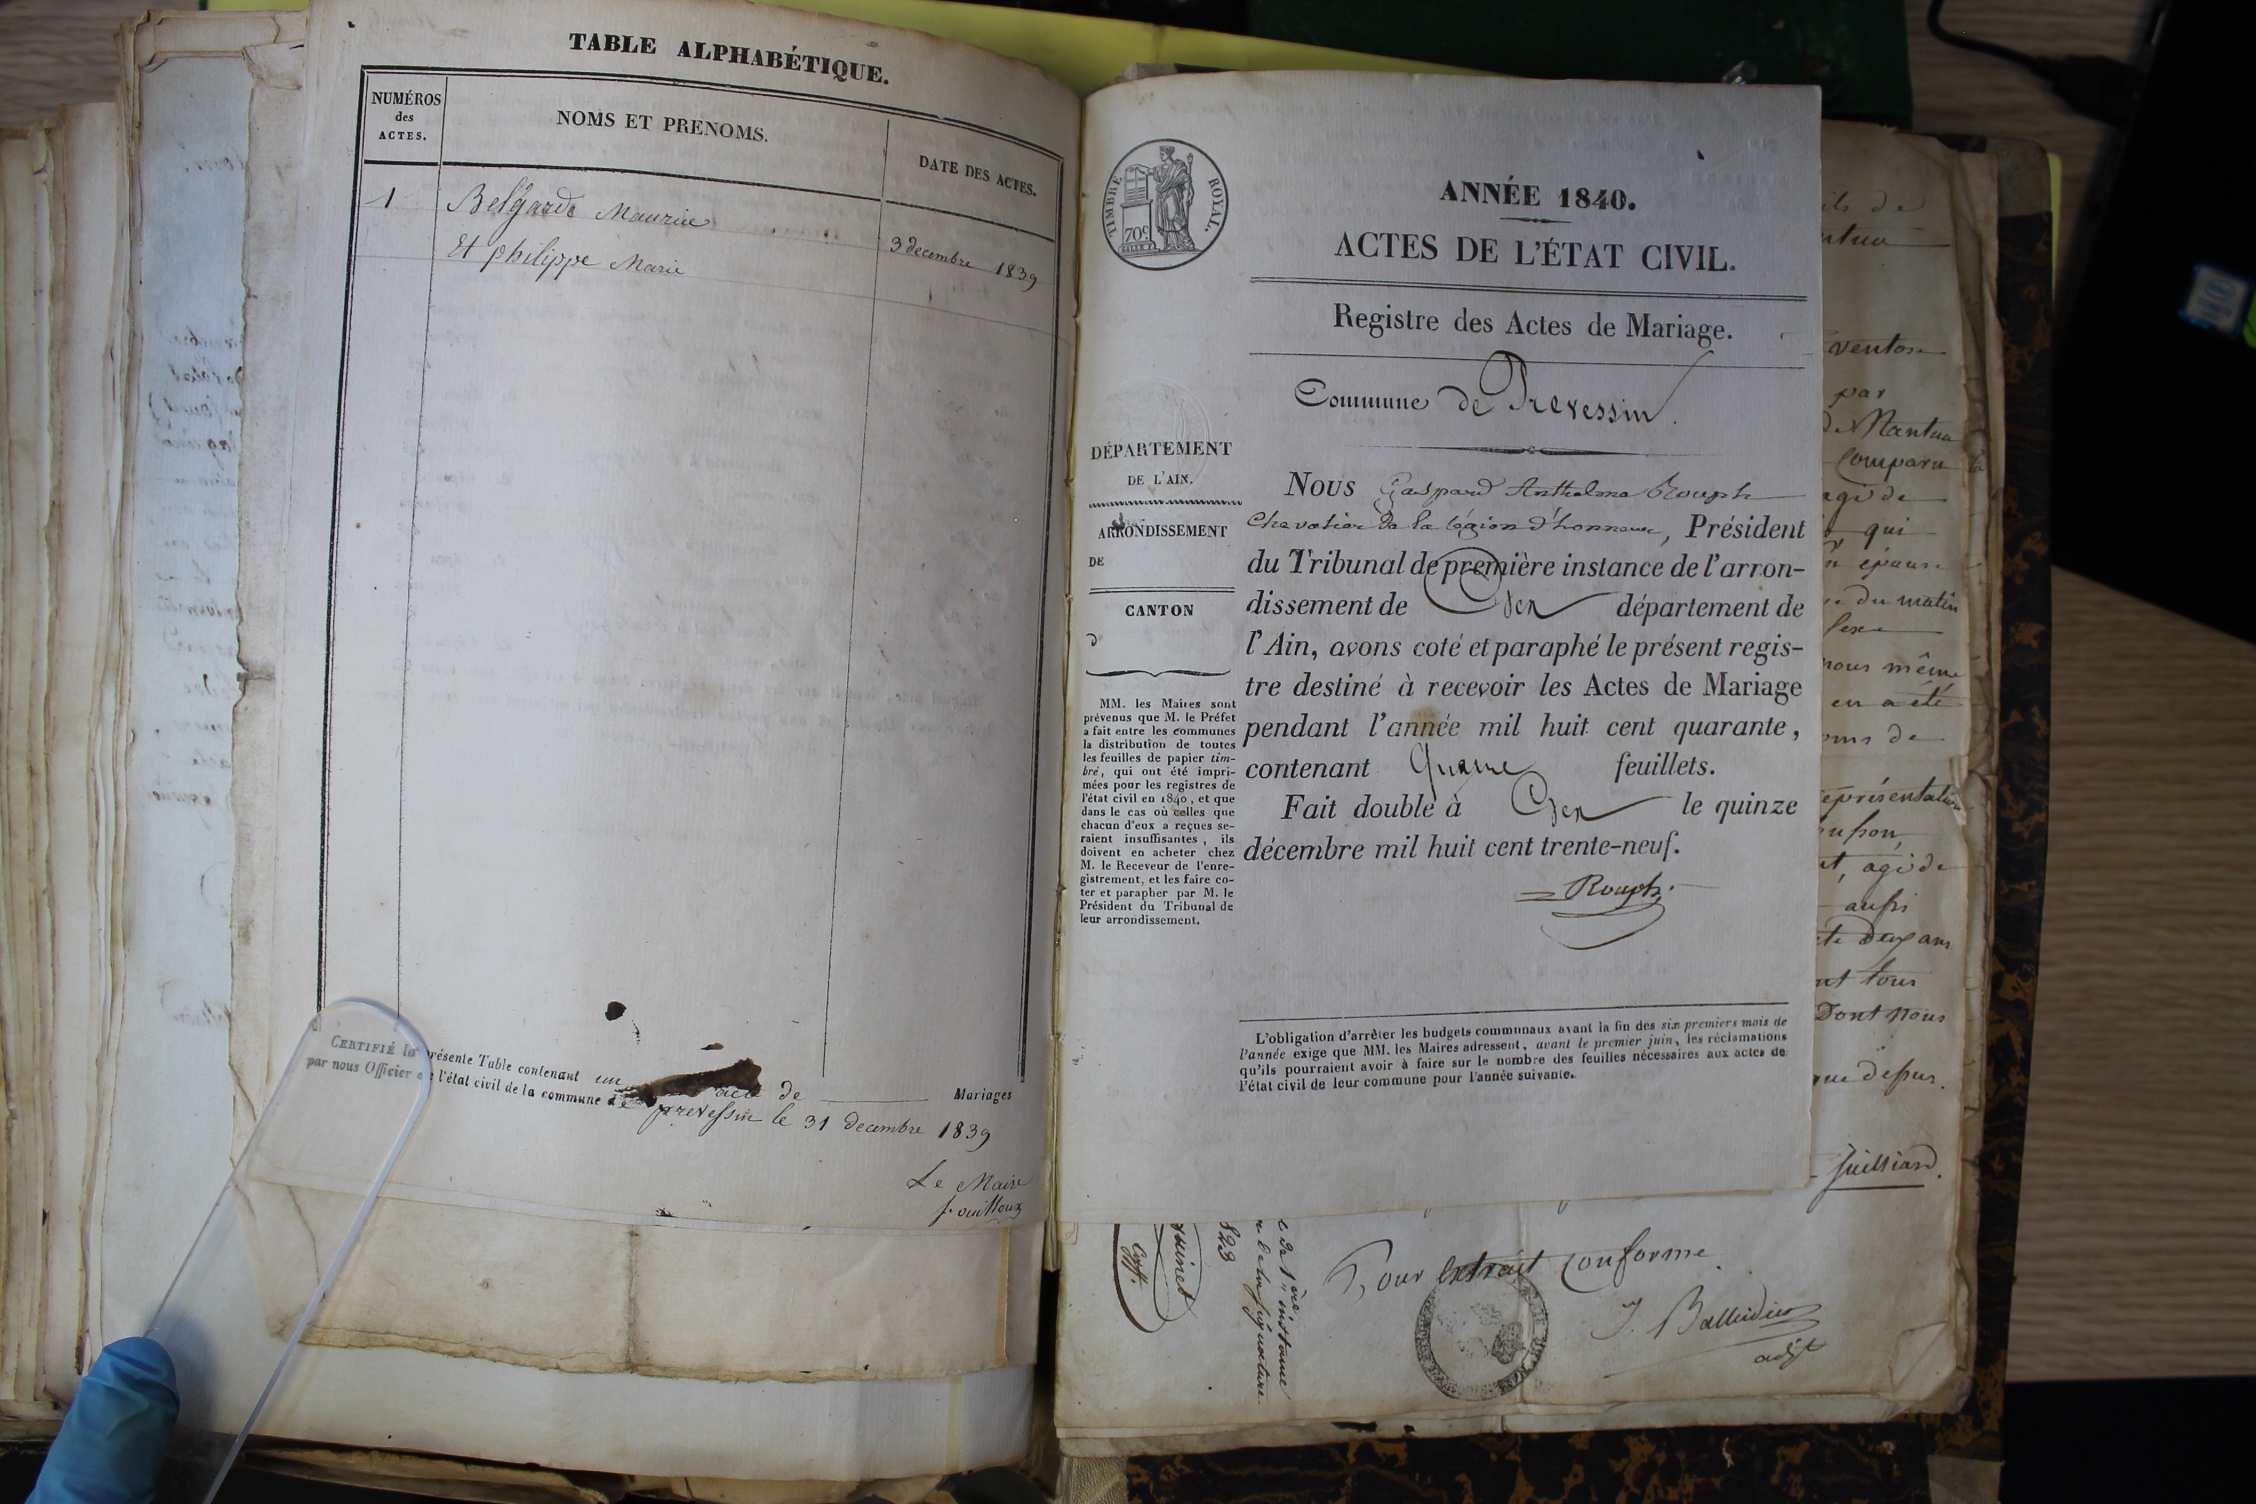 TABLE ALPHABÉTIQUE.
NUMÉROS
des
ACTES.
NOMS ET PRENOMS.
DATE DES ACTES.
1 Belgarde Maurice
Et philippe Marie 3 decembre 1839
CERTIFIÉ la présente Table contenant un acte de Mariages
par nous Officier de l'état civil de la commune de prevessin le 31 decembre 1839
Le Maire
TIMBRE ROYAL.
70c
ANNÉE 1840.
ACTES DE L'ÉTAT CIVIL.
Registre des Actes de Mariage.
Commune de Prevessin
DÉPARTEMENT
DE L'AIN.
ARRONDISSEMENT
DE
CANTON
D
MM. les Maires sont
prévenus que M. le Préfet
a fait entre les communes
la distribution de toutes
les feuilles de papier tim-
bré, qui ont été impri-
mées pour les registres de
l'état civil en 1840, et que
dans le cas où celles que
chacun d'eux a reçues se-
raient insuffisantes, ils
doivent en acheter chez
M. le Receveur de l'enre-
gistrement, et les faire co-
ter et parapher par M. le
Président du Tribunal de
leur arrondissement.
Nous Gaspard Anthelme Rouph
Chevalier de la légion d'honneur, Président
du Tribunal de première instance de l'arron-
dissement de Gex département de
l'Ain, avons coté et paraphé le présent regis-
tre destiné à recevoir les Actes de Mariage
pendant l'année mil huit cent quarante,
contenant feuillets.
Fait double à Gex le quinze
décembre mil huit cent trente-neuf.
Rouph
L'obligation d'arrêter les budgets communaux avant la fin des six premiers mois de
l'année exige que MM. les Maires adressent, avant le premier juin, les réclamations
qu'ils pourraient avoir à faire sur le nombre des feuilles nécessaires aux actes de
l'état civil de leur commune pour l'année suivante.
par
de Nantua
Comparu
agé de
qui
du matin
nous même
en a été
représentation
agé de
aussi
deux ans
tous
Dont nous
Juilliard.
Pour extrait conforme
adjt
823
1ère instance